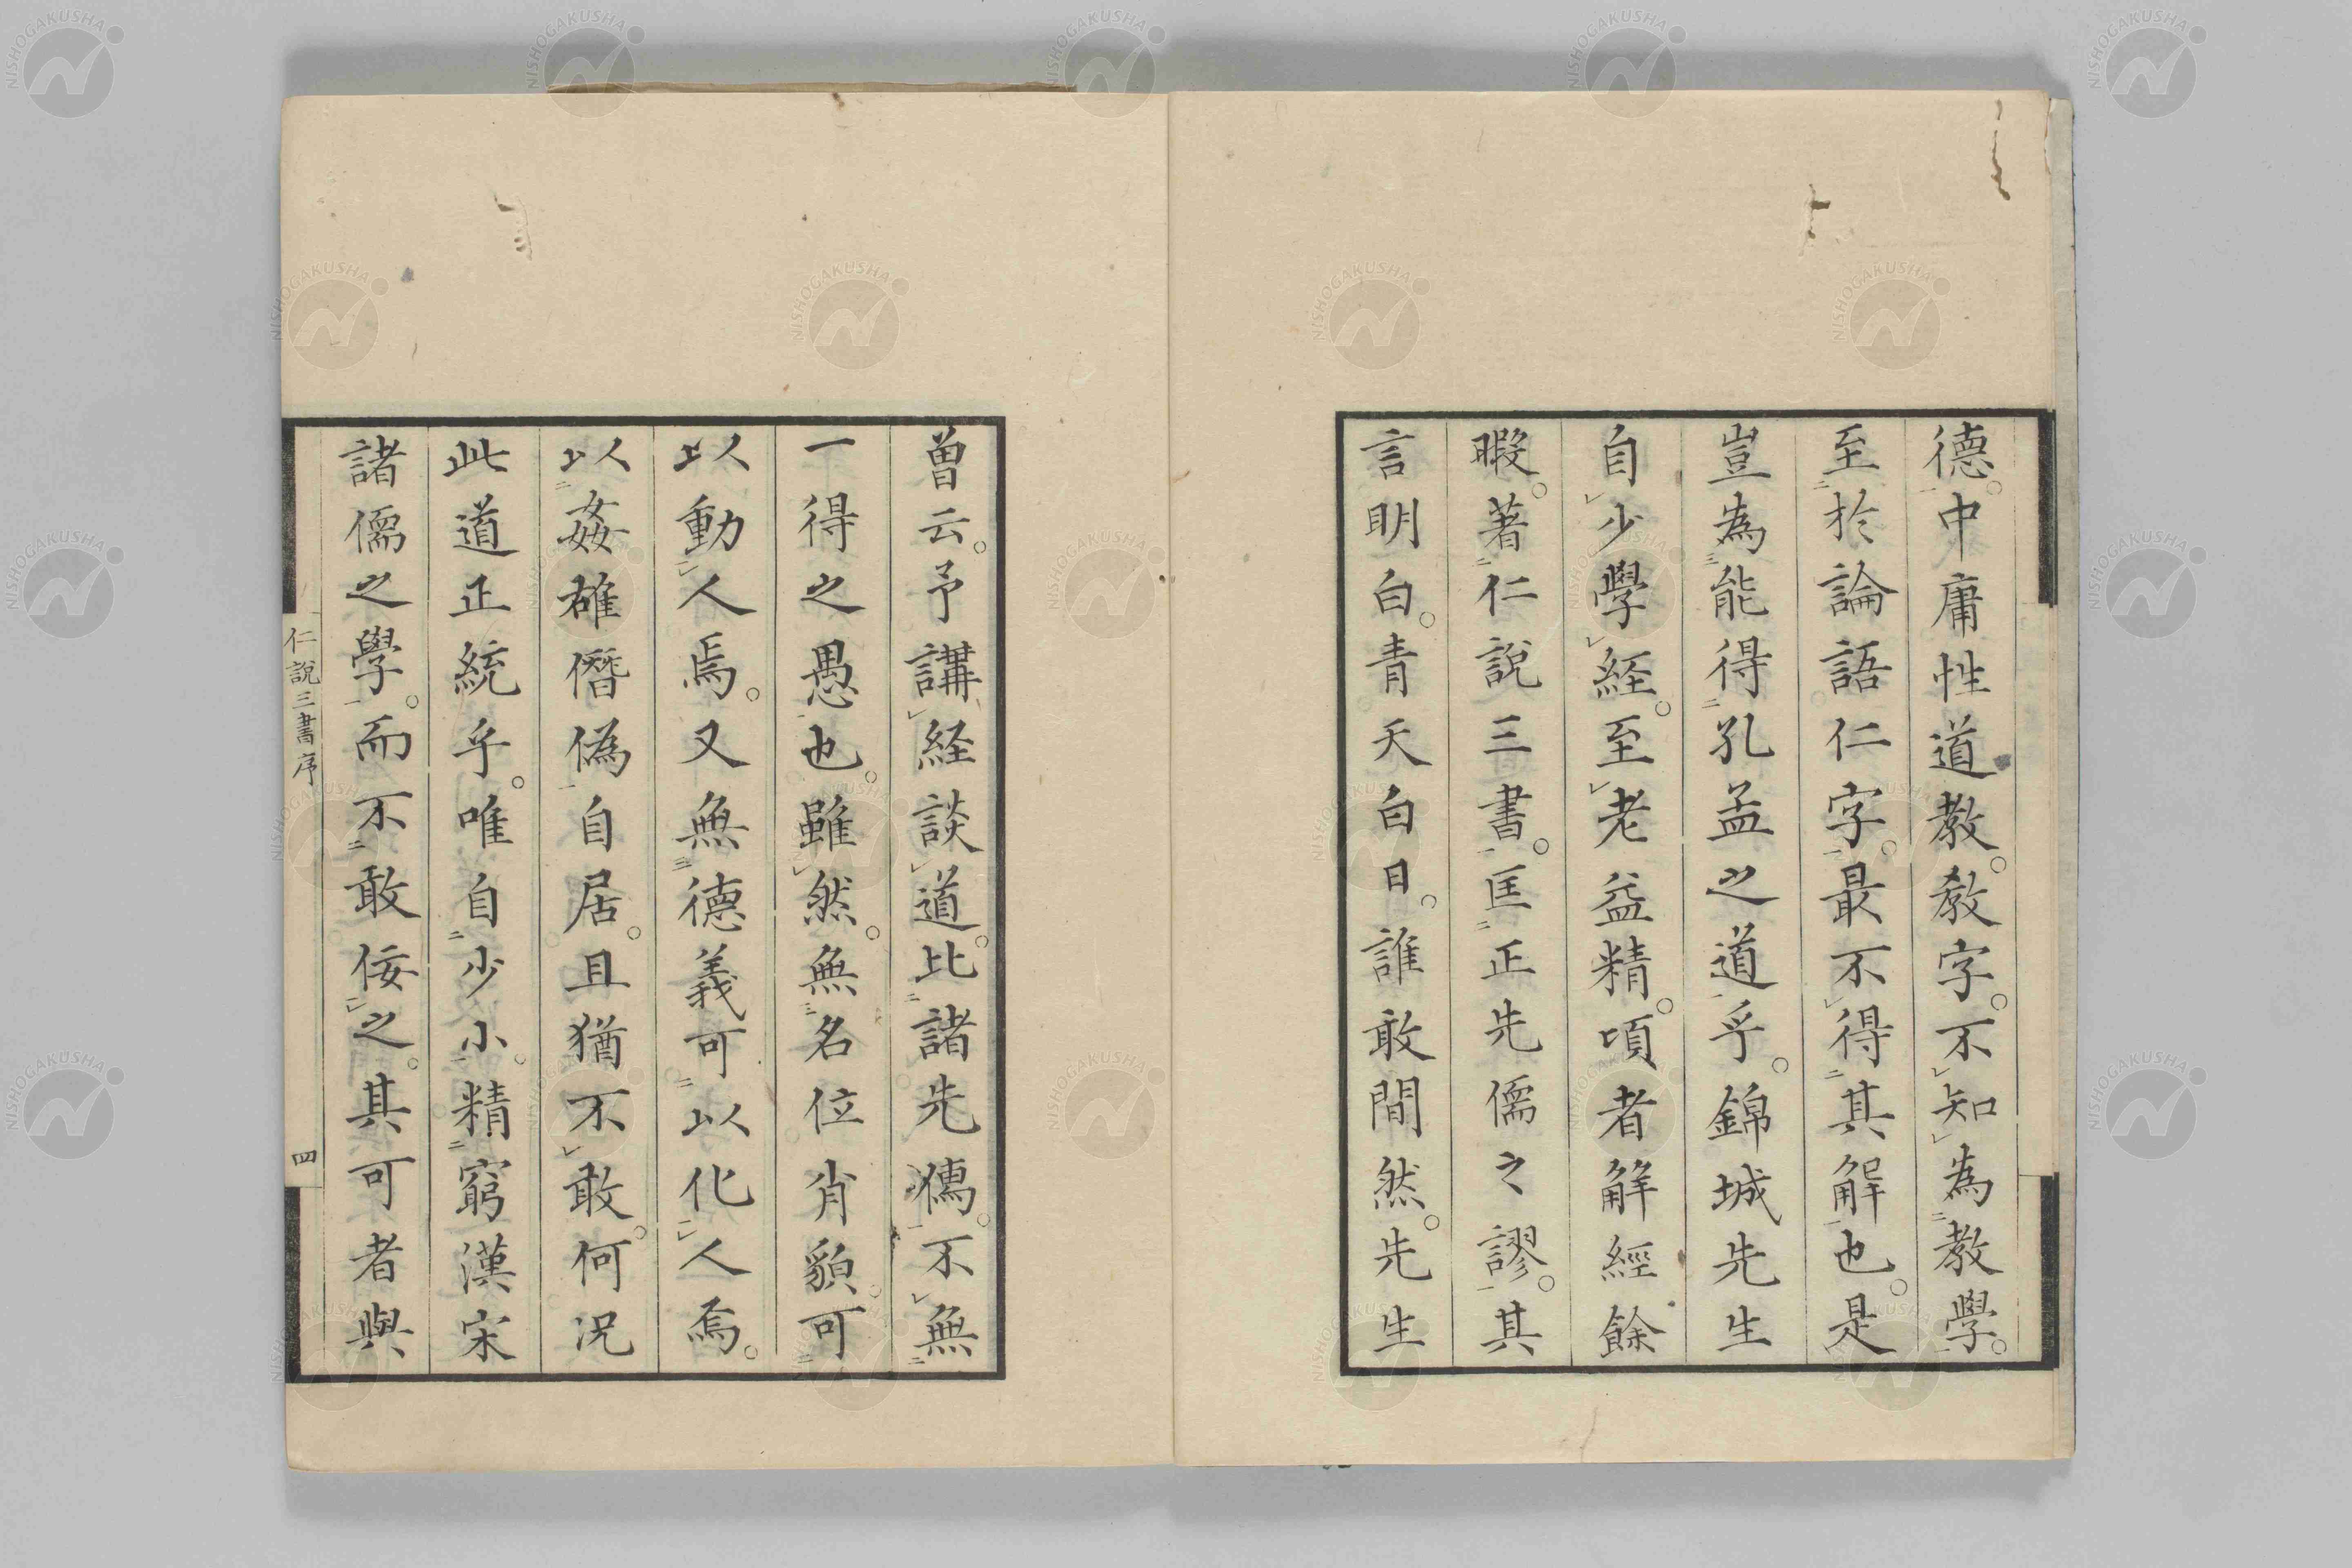 德。中庸性道教。教字。不知為教學。
至於論語仁字。最不得其解也。是
豈為能得孔孟之道乎。錦城先生
自少學経。至老益精。項者解經餘
暇。著仁說三書。匡正先儒之謬。其
言明白。青天白日。誰敢間然。先生
曽云。予講経談道。比諸先儒。不無
一得之愚也。雖然。無名位肖貌。可
以動人焉。又無德義可以化人焉。
以姦雄僭偽自居。且猶不敢。何況
此道正統乎。唯自少小。精窮漢宋
諸儒之學。而不敢佞之。其可者與
仁說三書序
四
NISHOGAKUSHA